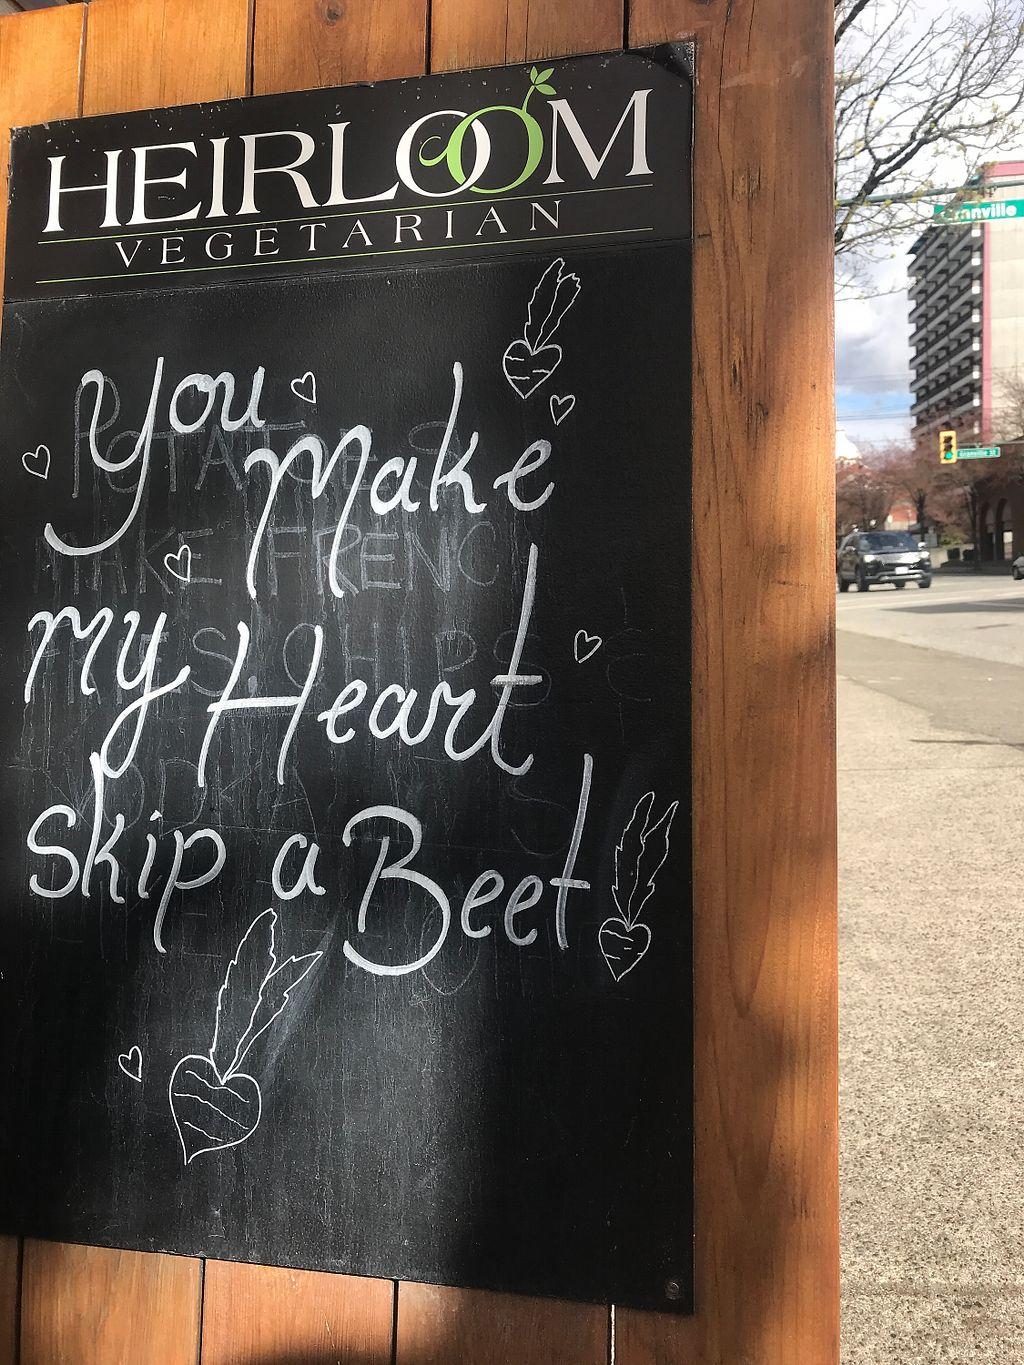 HEIRLOOM
VEGETARIAN
You
Make
my Heart
Skip a Beet
Granville
Granville St